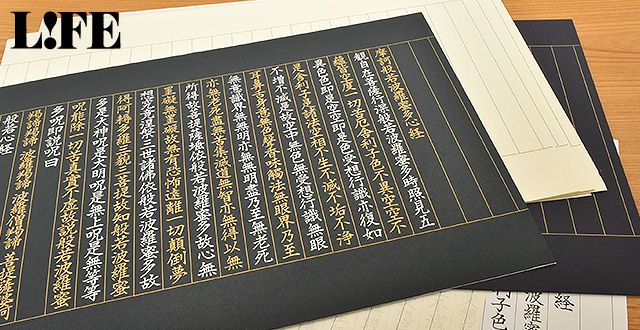 L!FE
摩訶般若波羅蜜多心経
觀自在菩薩行深般若波羅蜜多時照見五
蘊皆空度一切苦厄舍利子色不異空空不
異色色即是空空即是色受想行識亦復如
是舍利子是諸法空相不生不滅不垢不浄
不増不減是故空中無色無受想行識無眼
耳鼻舌身意無色聲香味觸法無眼界乃至
無意識界無無明亦無無明盡乃至無老死
亦無老死盡無苦集滅道無智亦無得以無
所得故菩提薩埵依般若波羅蜜多故心無
罣礙無罣礙故無有恐怖遠離一切顛倒夢
想究竟涅槃三世諸佛依般若波羅蜜多故
得阿耨多羅三藐三菩提故知般若波羅蜜
多是大神呪是大明呪是無上呪是無等等
呪能除一切苦真實不虚故説般若波羅蜜
多呪即説呪曰
羯諦羯諦 波羅羯諦 波羅僧羯諦 菩提薩婆訶
般若心経
経
波羅蜜
利子色